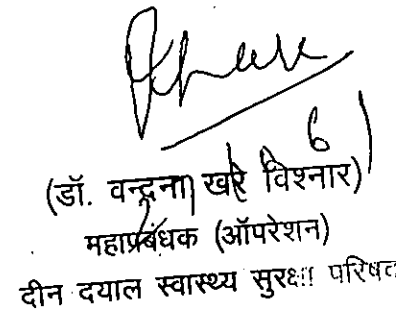 (डॉ. वन्द्रना खरे विश्नार)
महाप्रबंधक (ऑपरेशन)
दीन दयाल स्वास्थ्य सुरक्षा परिषद